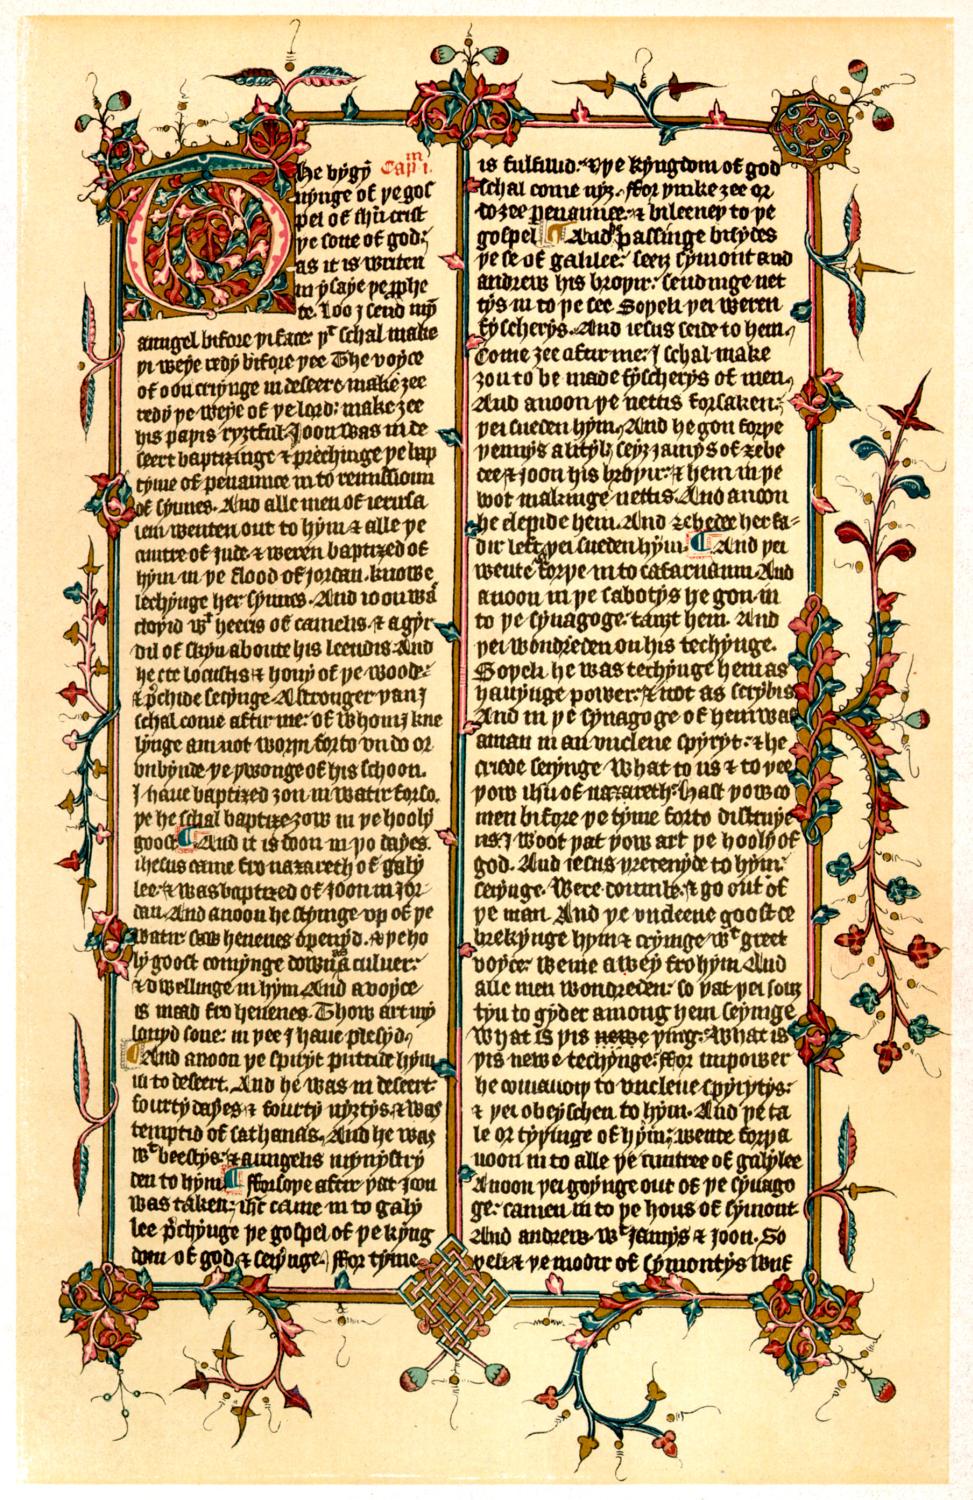 The bygȳ
Cap̄m i.
nynge of þe gos
pel of ihū crist
þe sone of god;
as it is writen
in ysaye þe p̱phe
te. Loo I send mȳ
aungel bifore þi face: þt schal make
þi weye redy bifore þee The voyce
of oon criynge in deseert. make ȝee
redy þe weye of þe lord: make ȝee
his paþis ryȝtful. Joon was in de
seert baptizinge & p̄echinge þe bap
tyme of penaunce in to remissioun
of synnes. And alle men of ierusa
lem wenten out to hym & alle þe
cuntre of Jude & weren baptized of
hym in þe flood of jordan. knowe
lechynge her synnes. And ioon wā
cloþid wt heeris of camelis. & a gyr
dil of skyn aboute his leendis. And
he ete locustis & hony of þe woode:
& p̄chide seiynge. A stronger þan I
schal come aftir me: of whom I kne
lynge am not worþi forto vndo or
vnbynde þe þwonge of his schoon.
I haue baptized ȝou in watir forso
þe he schal baptize ȝow in þe hooly
goost And it is doon in þo dayes.
ihesus came fro nazareth of galy
lee. & was baptized of Joon in Jor
dan. And anoon he styinge vp of þe
watir saw heuenes openyd. & þe ho
ly goost comynge doun as a culuer:
& dwellinge in hym And a voyce
is maad fro heuenes. Thow art my
louyd sone: in þee I haue plesyd.
And anoon þe spiryt puttide hym
in to desert. And he was in desert
fourty dayes & fourty nyȝtys. & was
temptid of sathanas. And he was
wt beestys: & aungelis mynystry
den to hym fforsoþe aftir þat Joon
was taken: ihc came in to galy
lee p̄chynge þe gospel of þe kyng
dom of god & seiynge. ffor tyme
is fulfild. & þe kyngdom of god
schal come nyȝ. ffor þinke ȝee or
do ȝee penaunce: & bileeuey to þe
gospel And passinge bisydes
þe se of galilee: seeȝ symont and
andrew his broþir: sendinge net
tys in to þe see Soþeli þei weren
fyscherys. And iesus seide to hem.
Come ȝee aftir me: I schal make
ȝou to be made fyscherys of men.
And anoon þe nettis forsaken:
þei sueden hym. And he gon forþe
þennys a lityl: seyȝ jamys of zebe
dee & joon his broþir: & hem in þe
boot makinge nettis. And anoon
he clepide hem. And zebedee her fa-
dir left þei sueden hym. And þei
wente forþe in to cafarnaum And
anoon in þe sabotys he gon in
to þe synagoge: tauȝt hem. And
þei wondreden on his techynge.
Soþeli he was techynge hem as
hauynge power: & not as scrybis
And in þe synagoge of hem was
aman in an vnclene spyryt: & he
criede seiynge What to us & to þee
þow ihū of nazareth: hast þow co
men bifore þe tyme forto distruye
us. I woot þat þow art þe hooly of
god. And iesus þretenyde to hym:
seiynge. Were doumb: & go out of
þe man. And þe vnclene goost de
brekynge hym & criynge wt greet
voyce: wente awey fro hym And
alle men wondreden: so þat þei souȝ
tyn to gyder among hem seiynge
What is þis newe þing: What is
þis newe techynge: ffor in power
he comaundiþ to vnclene spyrytys:
& þei obeyschen to hym. And þe ta
le or tyþinge of hym: wente forþ a
noon in to alle þe cuntree of galylee
Anoon þei goynge out of þe synago
ge: camen in to þe hous of symont
And andrew. wt Jamys & Joon. So
þeli & þe modir of symontys wijf